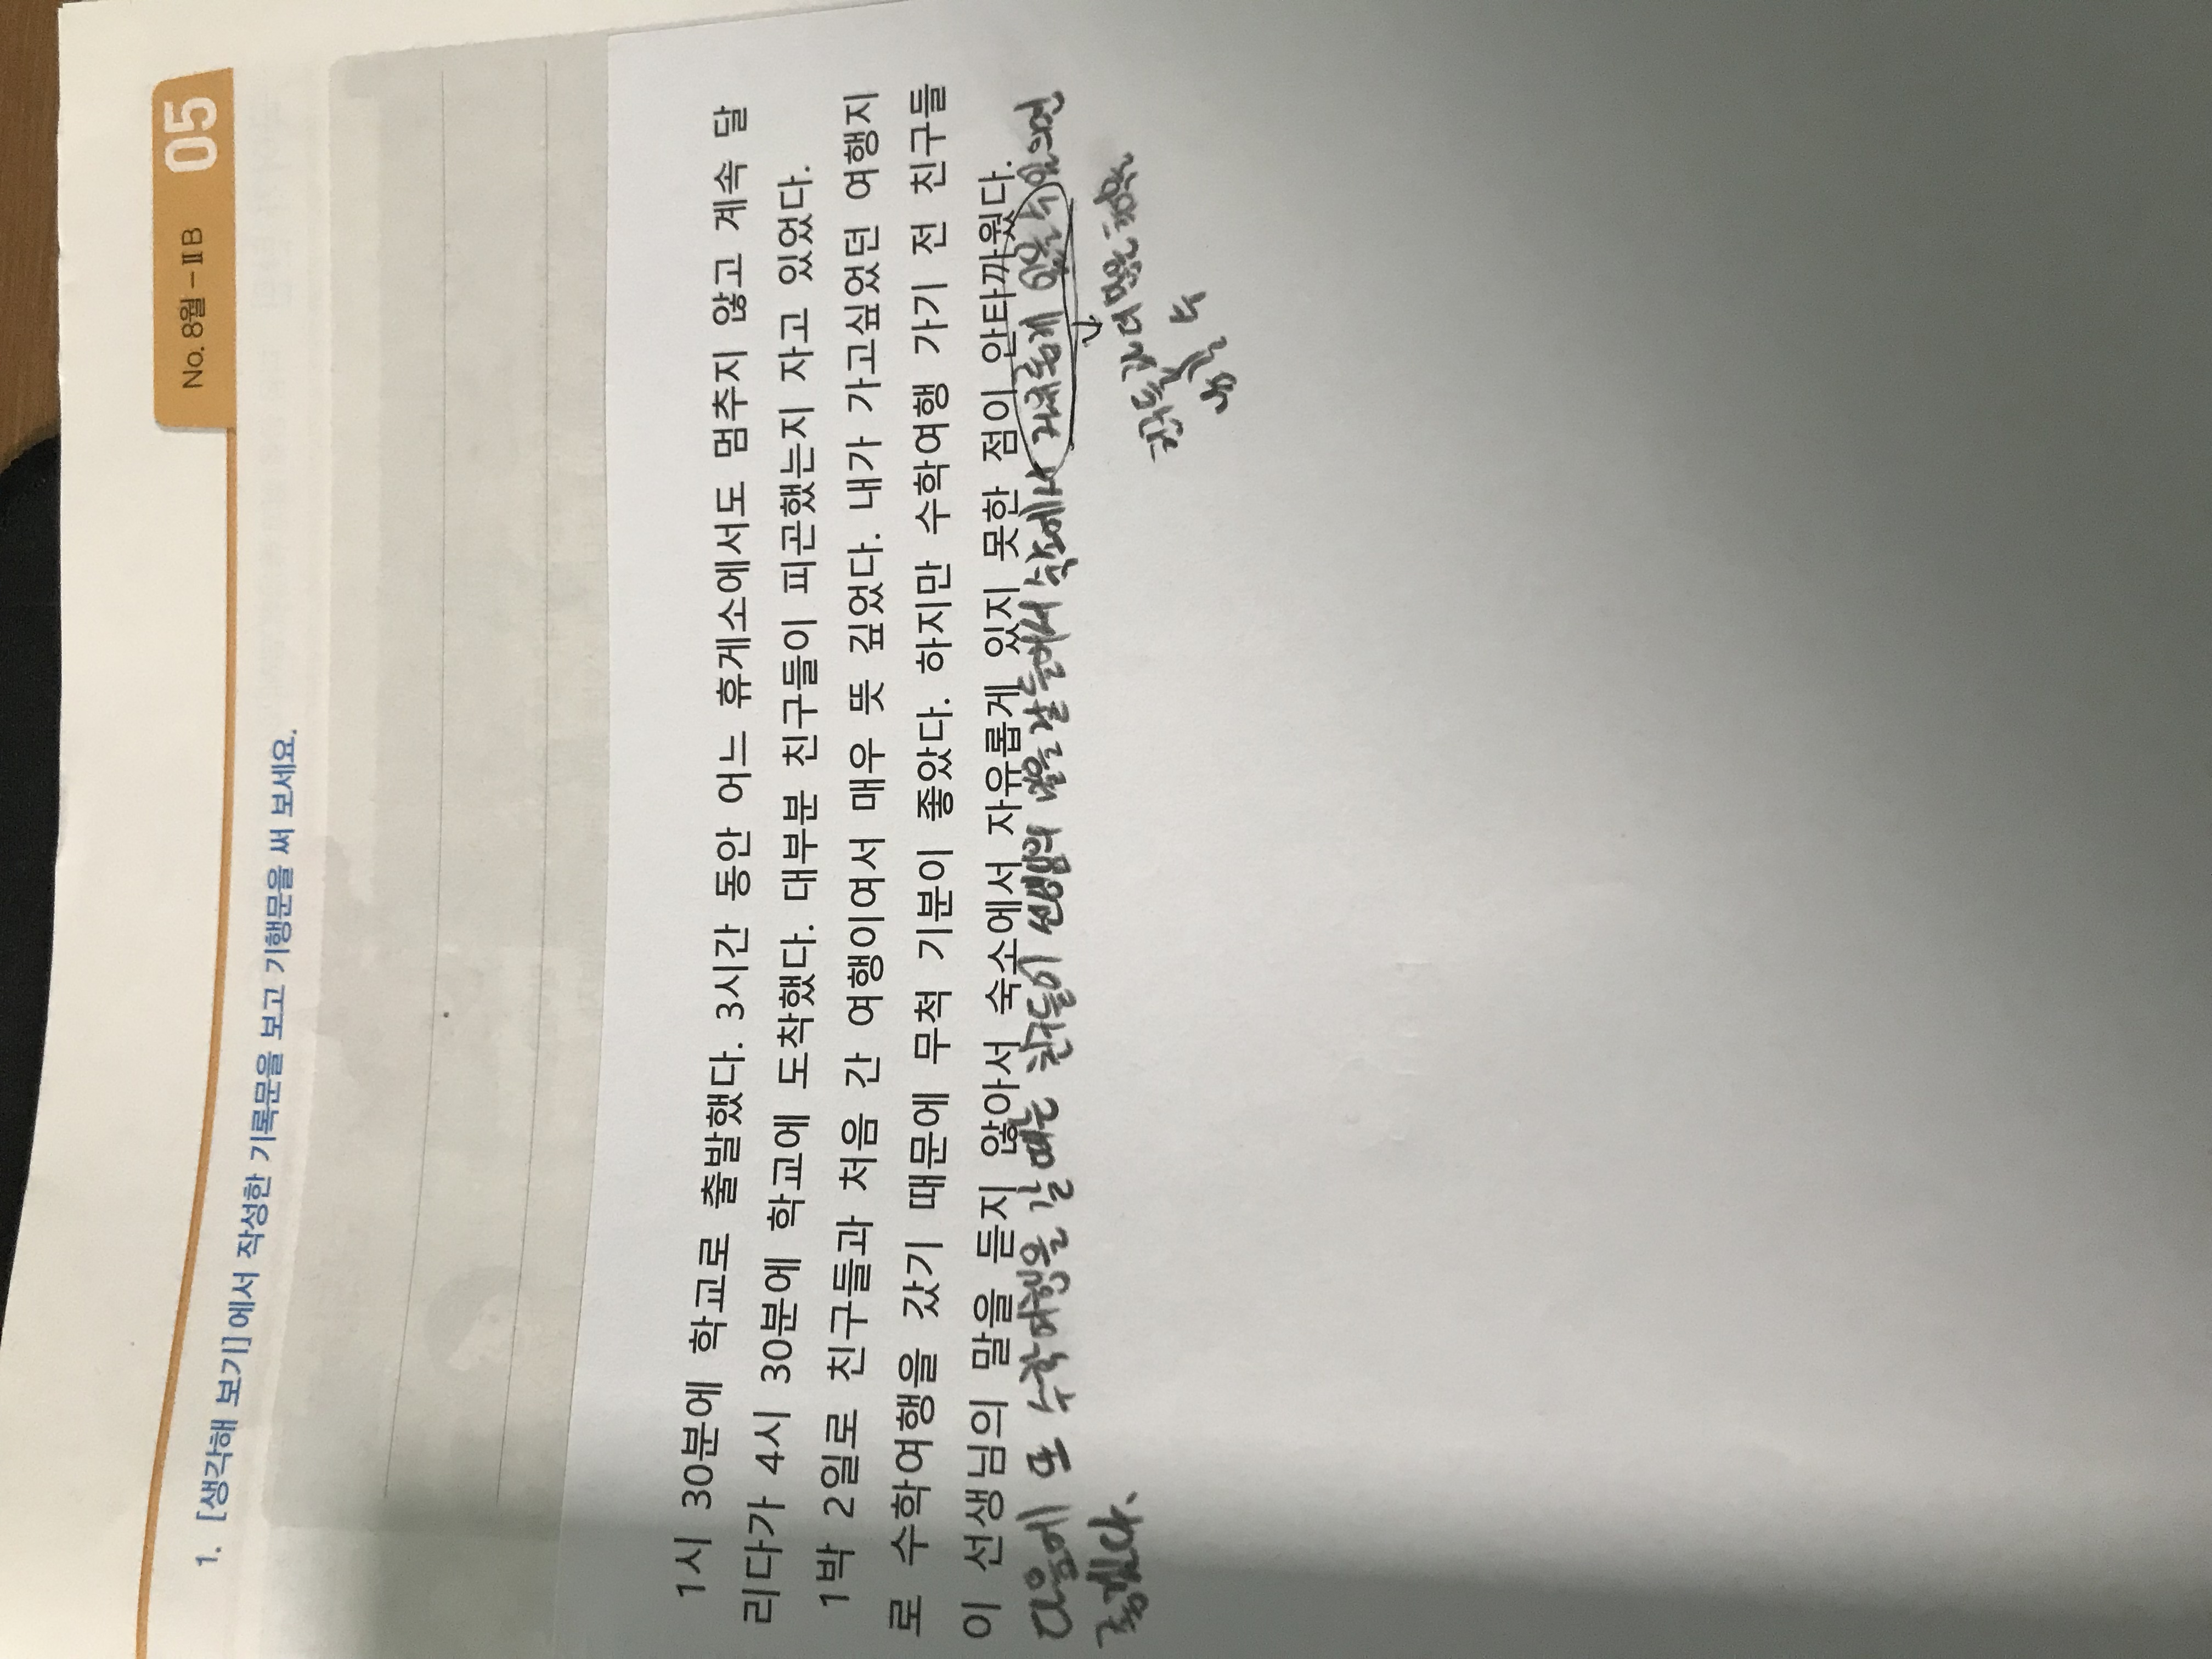 No. 8월 - ⅡB 05
1. [생각해 보기]에서 작성한 기록문을 보고 기행문을 써 보세요.
1시 30분에 학교로 출발했다. 3시간 동안 어느 휴게소에서도 멈추지 않고 계속 달
리다가 4시 30분에 학교에 도착했다. 대부분 친구들이 피곤했는지 자고 있었다.
1박 2일로 친구들과 처음 간 여행이여서 매우 뜻 깊었다. 내가 가고싶었던 여행지
로 수학여행을 갔기 때문에 무척 기분이 좋았다. 하지만 수학여행 가기 전 친구들
이 선생님의 말을 듣지 않아서 숙소에서 자유롭게 있지 못한 점이 안타까웠다.
다음에 또 수학여행을 갈 때는 친구들이 선생님의 말을 잘 들어서 숙소에서 자유롭게 있을 수 있으면
좋겠다.
친구들과 더 많은 추억
쌓을 수